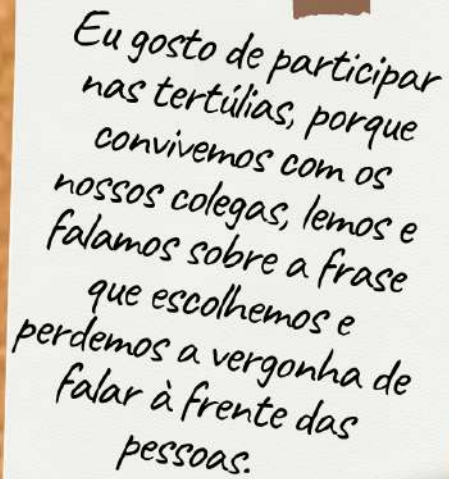 Eu gosto de participar
nas tertúlias, porque
convivemos com os
nossos colegas, lemos e
falamos sobre a frase
que escolhemos e
perdemos a vergonha de
falar à frente das
pessoas.